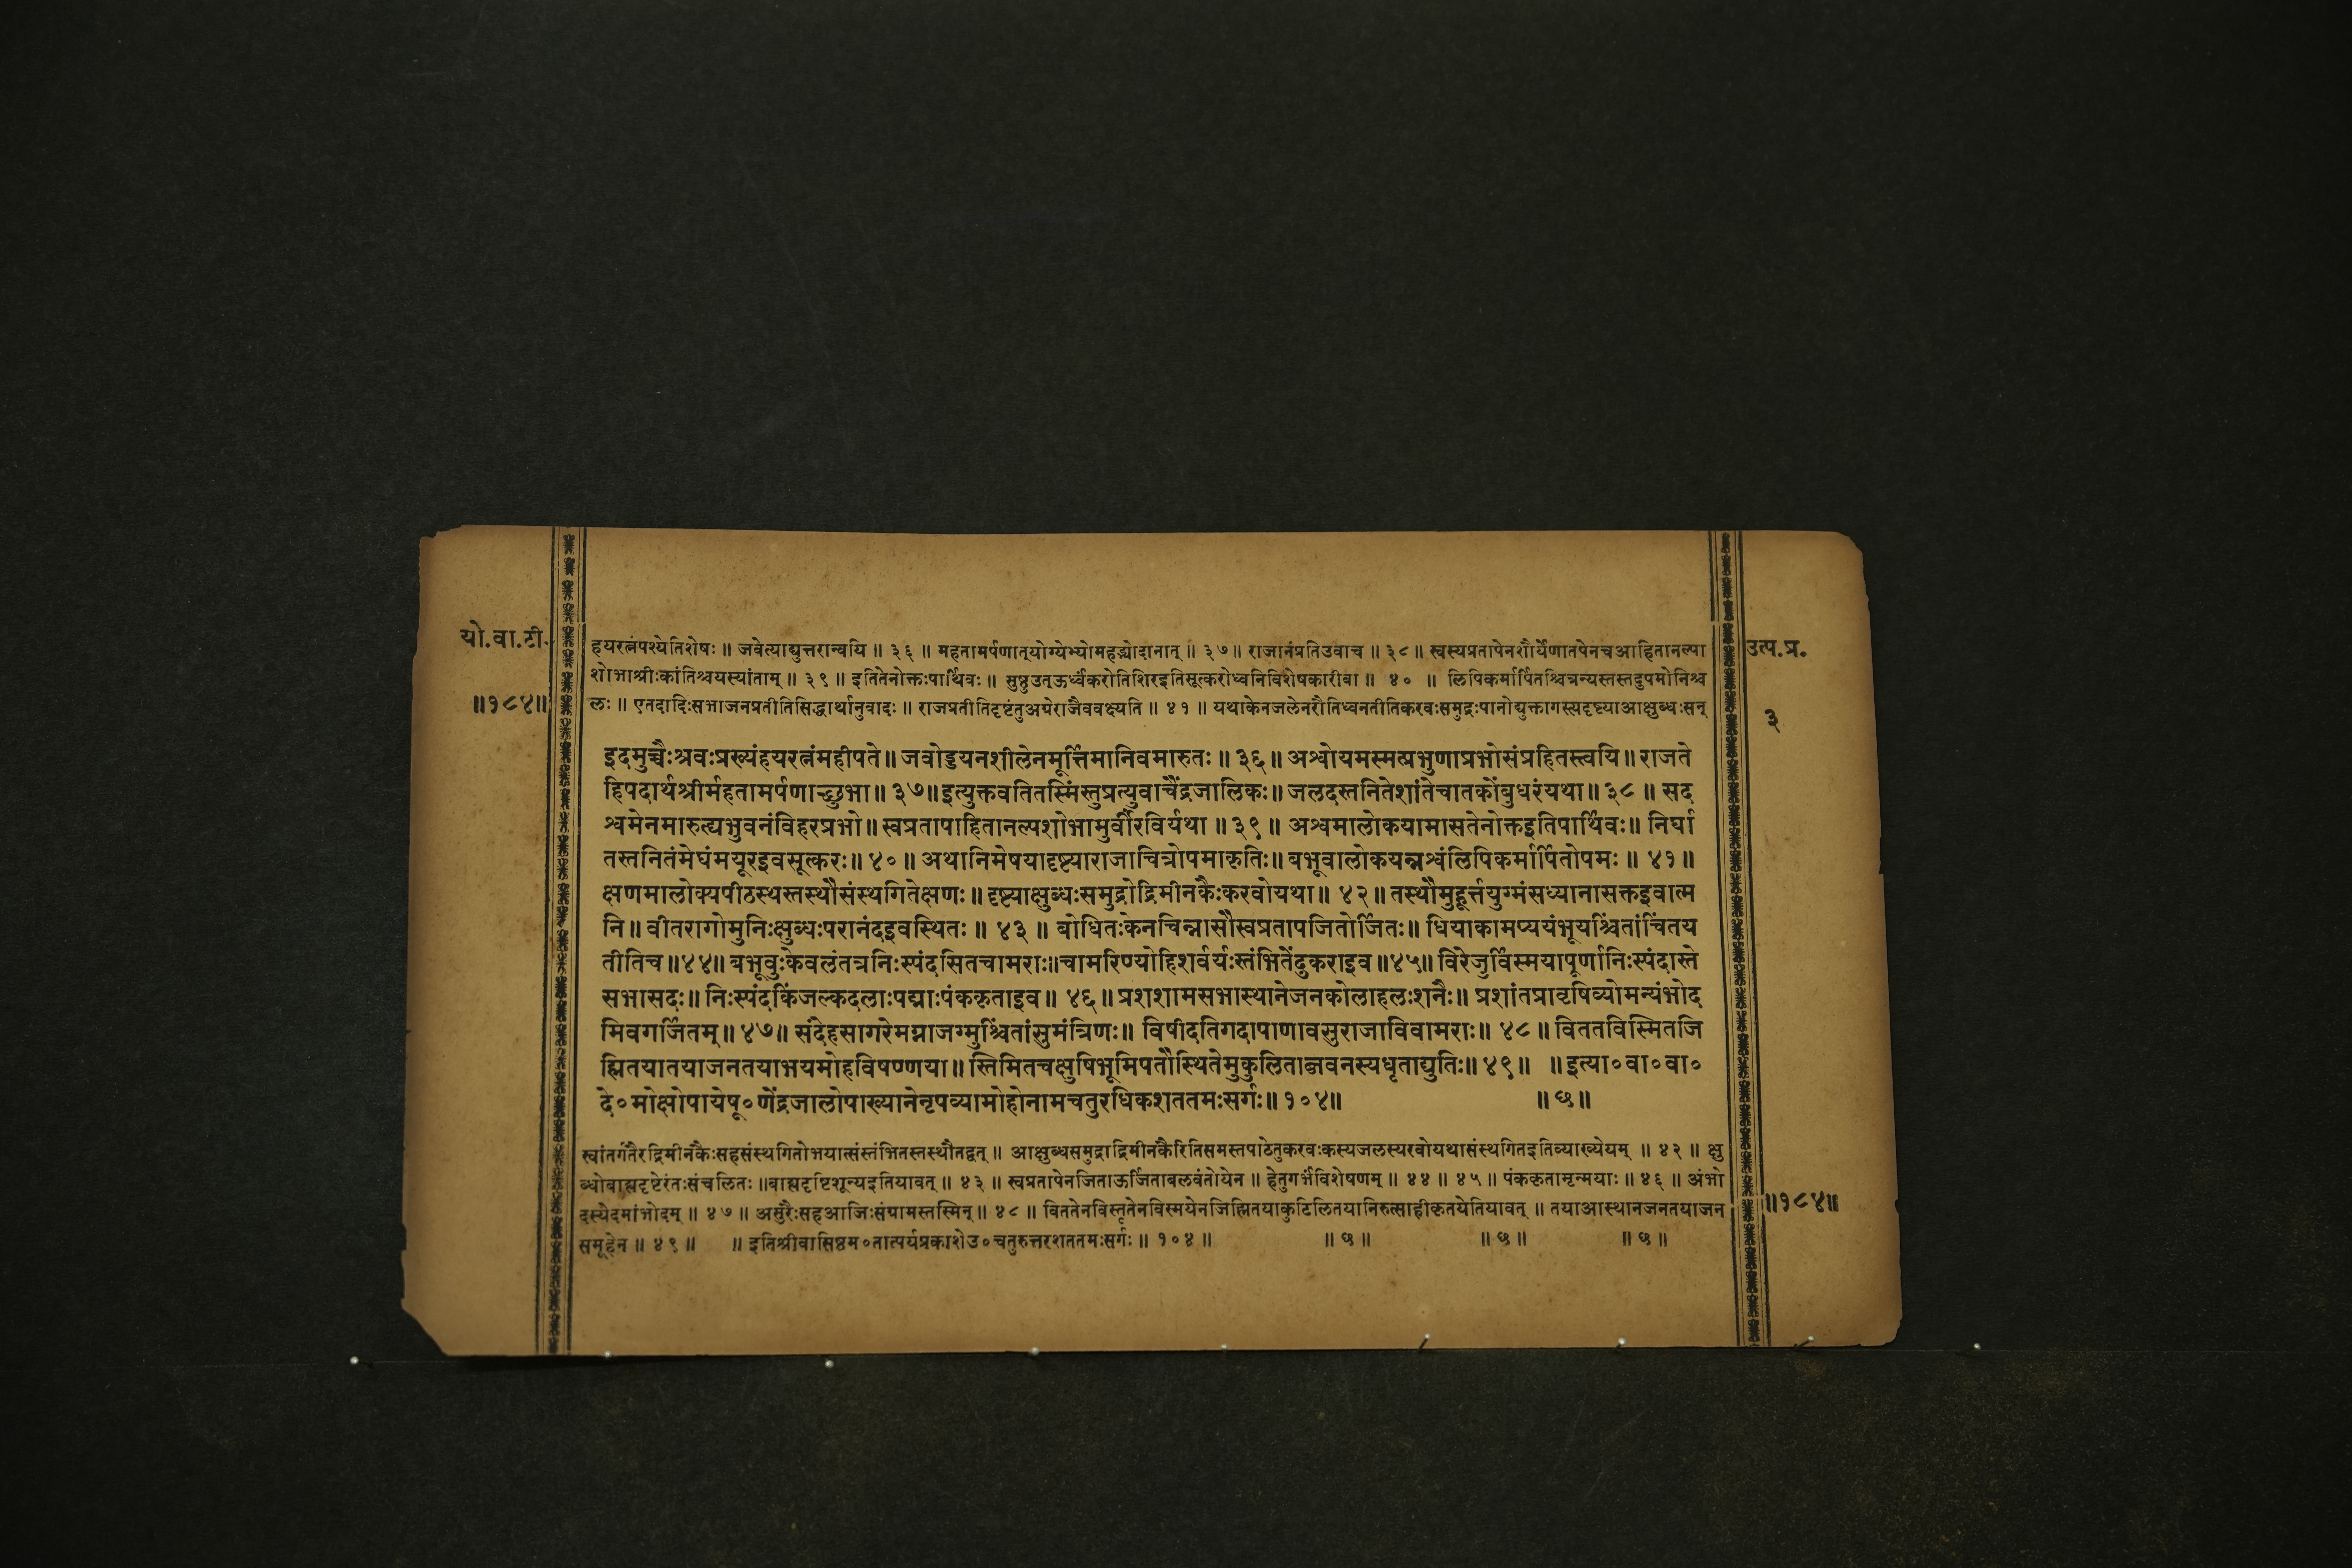 यो.वा.टी.
॥१८४॥
हयरत्नंपश्येतिशेषः ॥ जवेत्याद्युत्तरान्वयि ॥ ३६ ॥ महतामर्पणात्योग्येभ्योमहद्भ्योदानात् ॥ ३७ ॥ राजानंप्रतिउवाच ॥ ३८ ॥ स्वस्यप्रतापेनशौर्येणातपेनचआहितानल्पा
शोभाश्रीःकांतिश्चयस्यांताम् ॥ ३९ ॥ इतितेनोक्तःपार्थिवः ॥ सुष्ठुउत्ऊर्ध्वंकरोतिशिरइतिसूत्करोध्वनिविशेषकारीवा ॥ ४० ॥ लिपिकर्मार्पितश्चित्रन्यस्तस्तदुपमोनिश्च
लः ॥ एतदादिःसभाजनप्रतीतिसिद्धार्थानुवादः ॥ राजप्रतीतिदृष्टंतुअग्रेराजैववक्ष्यति ॥ ४१ ॥ यथाकेनजलेनरौतिध्वनतीतिकरवःसमुद्रःपानोद्युक्तागस्त्यदृष्ट्याआक्षुब्धःसन्
उत्प.प्र.
३
इदमुच्चैःश्रवःप्रख्यंहयरत्नंमहीपते॥ जवोड्डयनशीलेनमूर्त्तिमानिवमारुतः ॥ ३६ ॥ अश्वोयमस्मत्प्रभुणाप्रभोसंप्रहितस्त्वयि॥ राजते
हिपदार्थश्रीर्महतामर्पणाच्छुभा॥ ३७॥ इत्युक्तवतितस्मिंस्तुप्रत्युवाचैंद्रजालिकः॥ जलदस्तनितेशांतेचातकोंबुधरंयथा॥ ३८ ॥ सद
श्वमेनमारुत्द्यभुवनंविहरप्रभो॥ स्वप्रतापाहितानल्पशोभामुर्वीरविर्यथा ॥ ३९ ॥ अश्वमालोकयामासतेनोक्तइतिपार्थिवः॥ निर्घा
तस्तनितंमेघंमयूरइवसूत्करः॥ ४० ॥ अथानिमेषयादृष्ट्याराजाचित्रोपमाकृतिः॥ बभूवालोकयन्नश्वंलिपिकर्मार्पितोपमः ॥ ४१ ॥
क्षणमालोक्यपीठस्थस्तस्थौसंस्थगितेक्षणः॥ दृष्ट्याक्षुब्धःसमुद्रोद्रिमीनकैःकरवोयथा॥ ४२ ॥ तस्थौमुहूर्त्तयुग्मंसध्यानासक्तइवात्म
नि॥ वीतरागोमुनिःक्षुब्धःपरानंदइवस्थितः ॥ ४३ ॥ बोधितःकेनचिन्नासौस्वप्रतापजितोर्जितः॥ धियाकामप्ययंभूयश्चिंतांचिंतय
तीतिच ॥४४॥ बभूवुःकेवलंतत्रनिःस्पंदसितचामराः॥ चामरिण्योहिशर्वर्यःस्तंभितेंदुकराइव ॥४५॥ विरेजुर्विस्मयापूर्णानिःस्पंदास्ते
सभासदः॥ निःस्पंदकिंजल्कदलाःपद्माःपंककृताइव॥ ४६ ॥ प्रशशामसभास्थानेजनकोलाहलःशनैः॥ प्रशांतप्रावृषिव्योमन्यंभोद
मिवगर्जितम्॥ ४७॥ संदेहसागरेमग्नाजग्मुश्चिंतांसुमंत्रिणः॥ विषीदतिगदापाणावसुराजाविवामराः॥ ४८ ॥ विततविस्मितजि
ह्मितयातयाजनतयाभयमोहविषण्णया॥ स्तिमितचक्षुषिभूमिपतौस्थितेमुकुलिताब्जवनस्यधृताद्युतिः॥ ४९॥ ॥ इत्या०वा०वा०
दे०मोक्षोपायेषू०णेंद्रजालोपाख्यानेनृपव्यामोहोनामचतुरधिकशततमःसर्गः॥ १०४॥ ॥ छ ॥
स्वांतर्गतैरद्रिमीनकैःसहसंस्थगितोभयात्संस्तंभितस्तस्थौतद्वत् ॥ आक्षुब्धसमुद्राद्रिमीनकैरितिसमस्तपाठेतुकरवःकस्यजलस्यरवोयथासंस्थगितइतिव्याख्येयम् ॥ ४२ ॥ क्षु
ब्धोबाह्यदृष्टेरंतःसंचलितः ॥बाह्यदृष्टिशून्यइतियावत् ॥ ४३ ॥ स्वप्रतापेनजिताऊर्जिताबलवंतोयेन ॥ हेतुगर्भंविशेषणम् ॥ ४४ ॥ ४५ ॥ पंककृतामृन्मयाः ॥ ४६ ॥ अंभो
दस्येदमांभोदम् ॥ ४७ ॥ असुरैःसहआजिःसंग्रामस्तस्मिन् ॥ ४८ ॥ विततेनविस्तृतेनविस्मयेनजिह्मितयाकुटिलितयानिरुत्साहीकृतयेतियावत् ॥ तयाआस्थानजनतयाजन
समूहेन ॥ ४९ ॥ ॥ इतिश्रीवासिष्ठम०तात्पर्यप्रकाशेउ०चतुरुत्तरशततमःसर्गः ॥ १०४ ॥ ॥ छ ॥ ॥ छ ॥ ॥ छ ॥
॥१८४॥